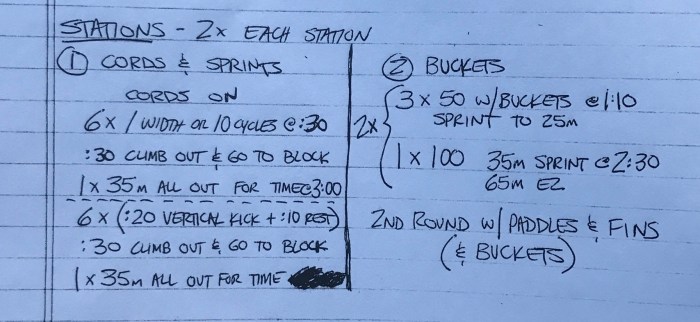 STATIONS - 2x EACH STATION
① CORDS & SPRINTS
CORDS ON
6x 1 WIDTH OR 10 CYCLES @ :30
:30 CLIMB OUT & GO TO BLOCK
1 x 35m ALL OUT FOR TIME @3:00
6 x (:20 VERTICAL KICK + :10 REST)
:30 CLIMB OUT & GO TO BLOCK
1 x 35m ALL OUT FOR TIME
② BUCKETS
2x { 3 x 50 w/BUCKETS @ 1:10
SPRINT TO 25m
1 x 100 35m SPRINT @ 2:30
65m EZ
2ND ROUND w/ PADDLES & FINS
(& BUCKETS)